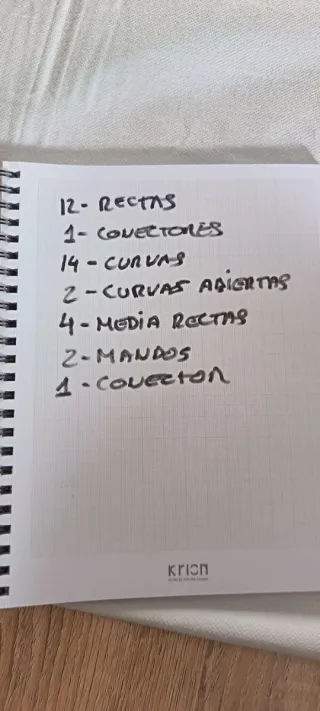 12- RECTAS
1- CONECTORES
14 - CURVAS
2 - CURVAS ABIERTAS
4 - MEDIA RECTAS
2 - MANDOS
1 - CONECTOR
KRION